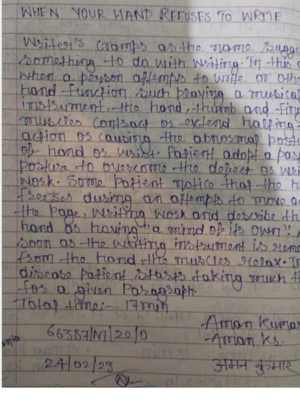 WHEN YOUR HAND REFUSES TO WRITE
Writer's cramps as the name sugge
something to do with writing. In this
when a person attempts to write or oth
hand-function such playing a musical
instrument. the hand, thumb and fin
muscles contract or extend halting
action or causing the abnormal post
of hand or wrist. Patient adopt a
posture to overcome the defect or
work. Some Patient notice that the h
freezes during an attempts to move a
the page, writing work and describe th
hand as having "a mind of its own".
soon as the writing instrument is
from the hand the muscles relax. I
disease patient starts taking much t
for a given Paragraph.
Total time:- 17min
Aman Kumar
66387/ /22/0
Aman Kr.
24/02/23
अमन कुमार